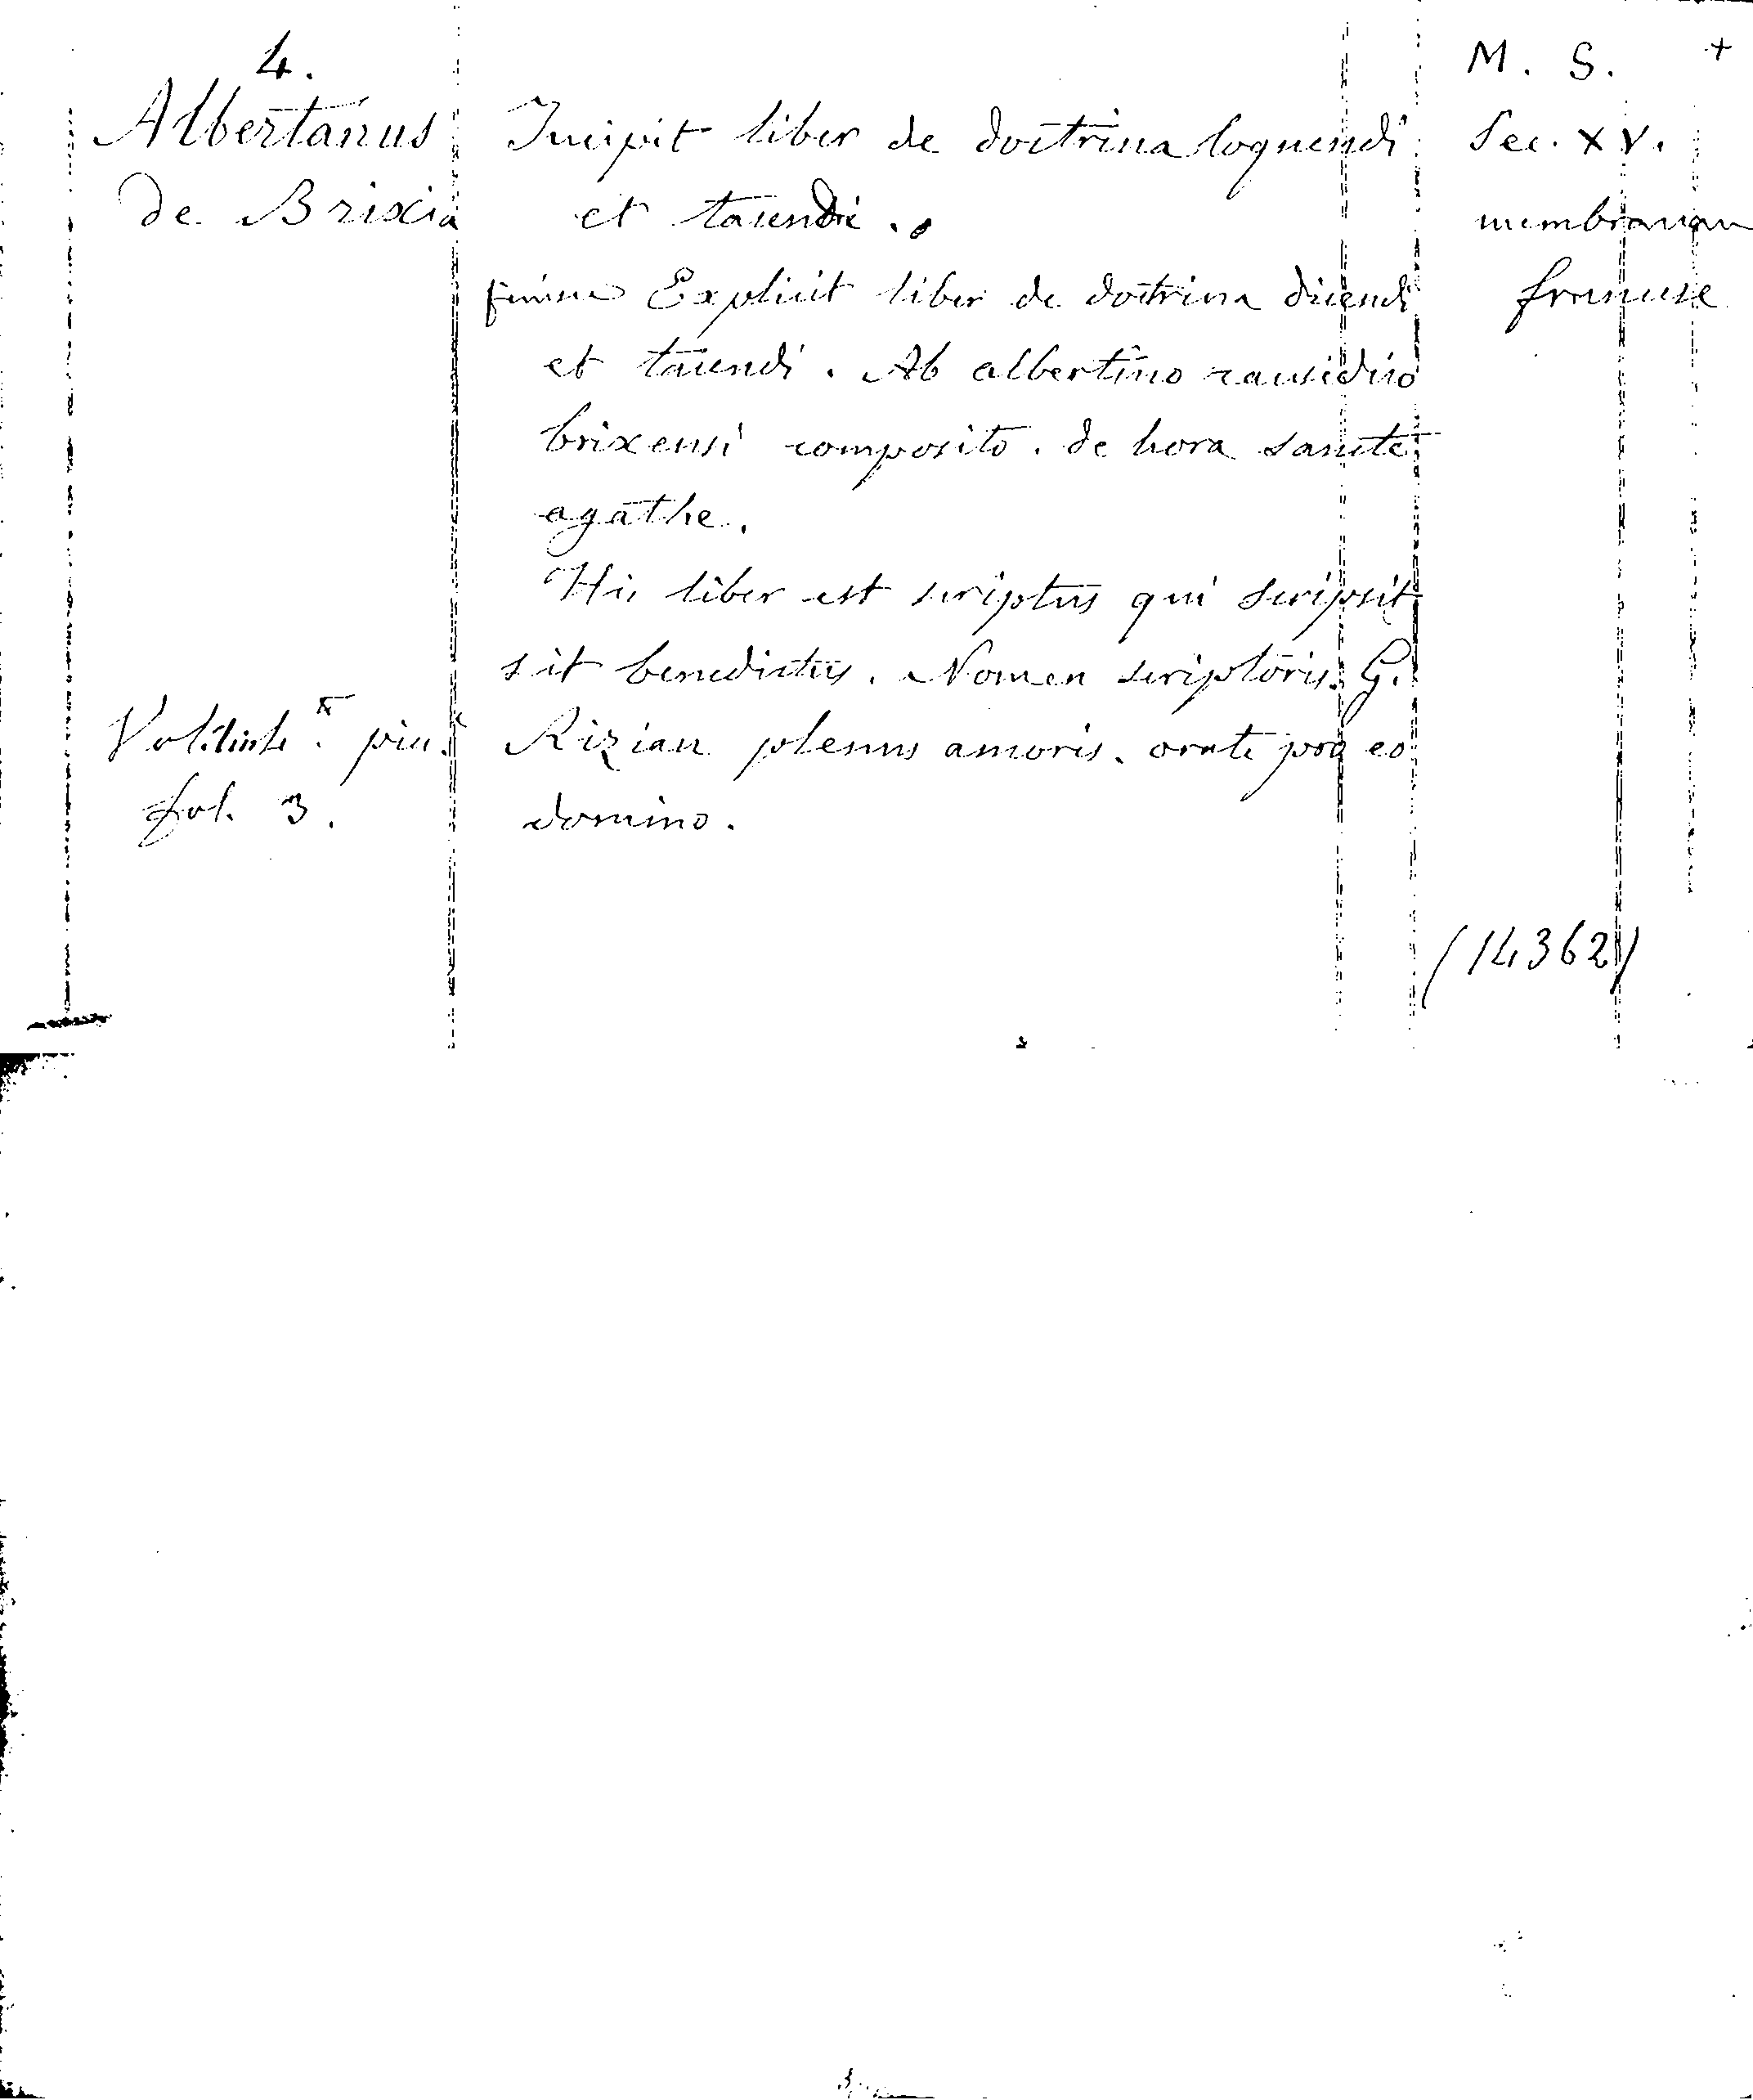 4.
Albertanus
de Brixia
Incipit liber de doctrina loquendi
et tacendi.
Explicit liber de doctrina dicendi
et tacendi. Ab albertino causidico
brixensi composito. de hora sancte
agathe.
Hic liber est scriptus qui scripsit
sit benedictus. Nomen scriptoris. G.
Rizian plenus amoris. orate pro eo
domino.
fol. 3.
M. S. +
Sec. XV.
(14362)